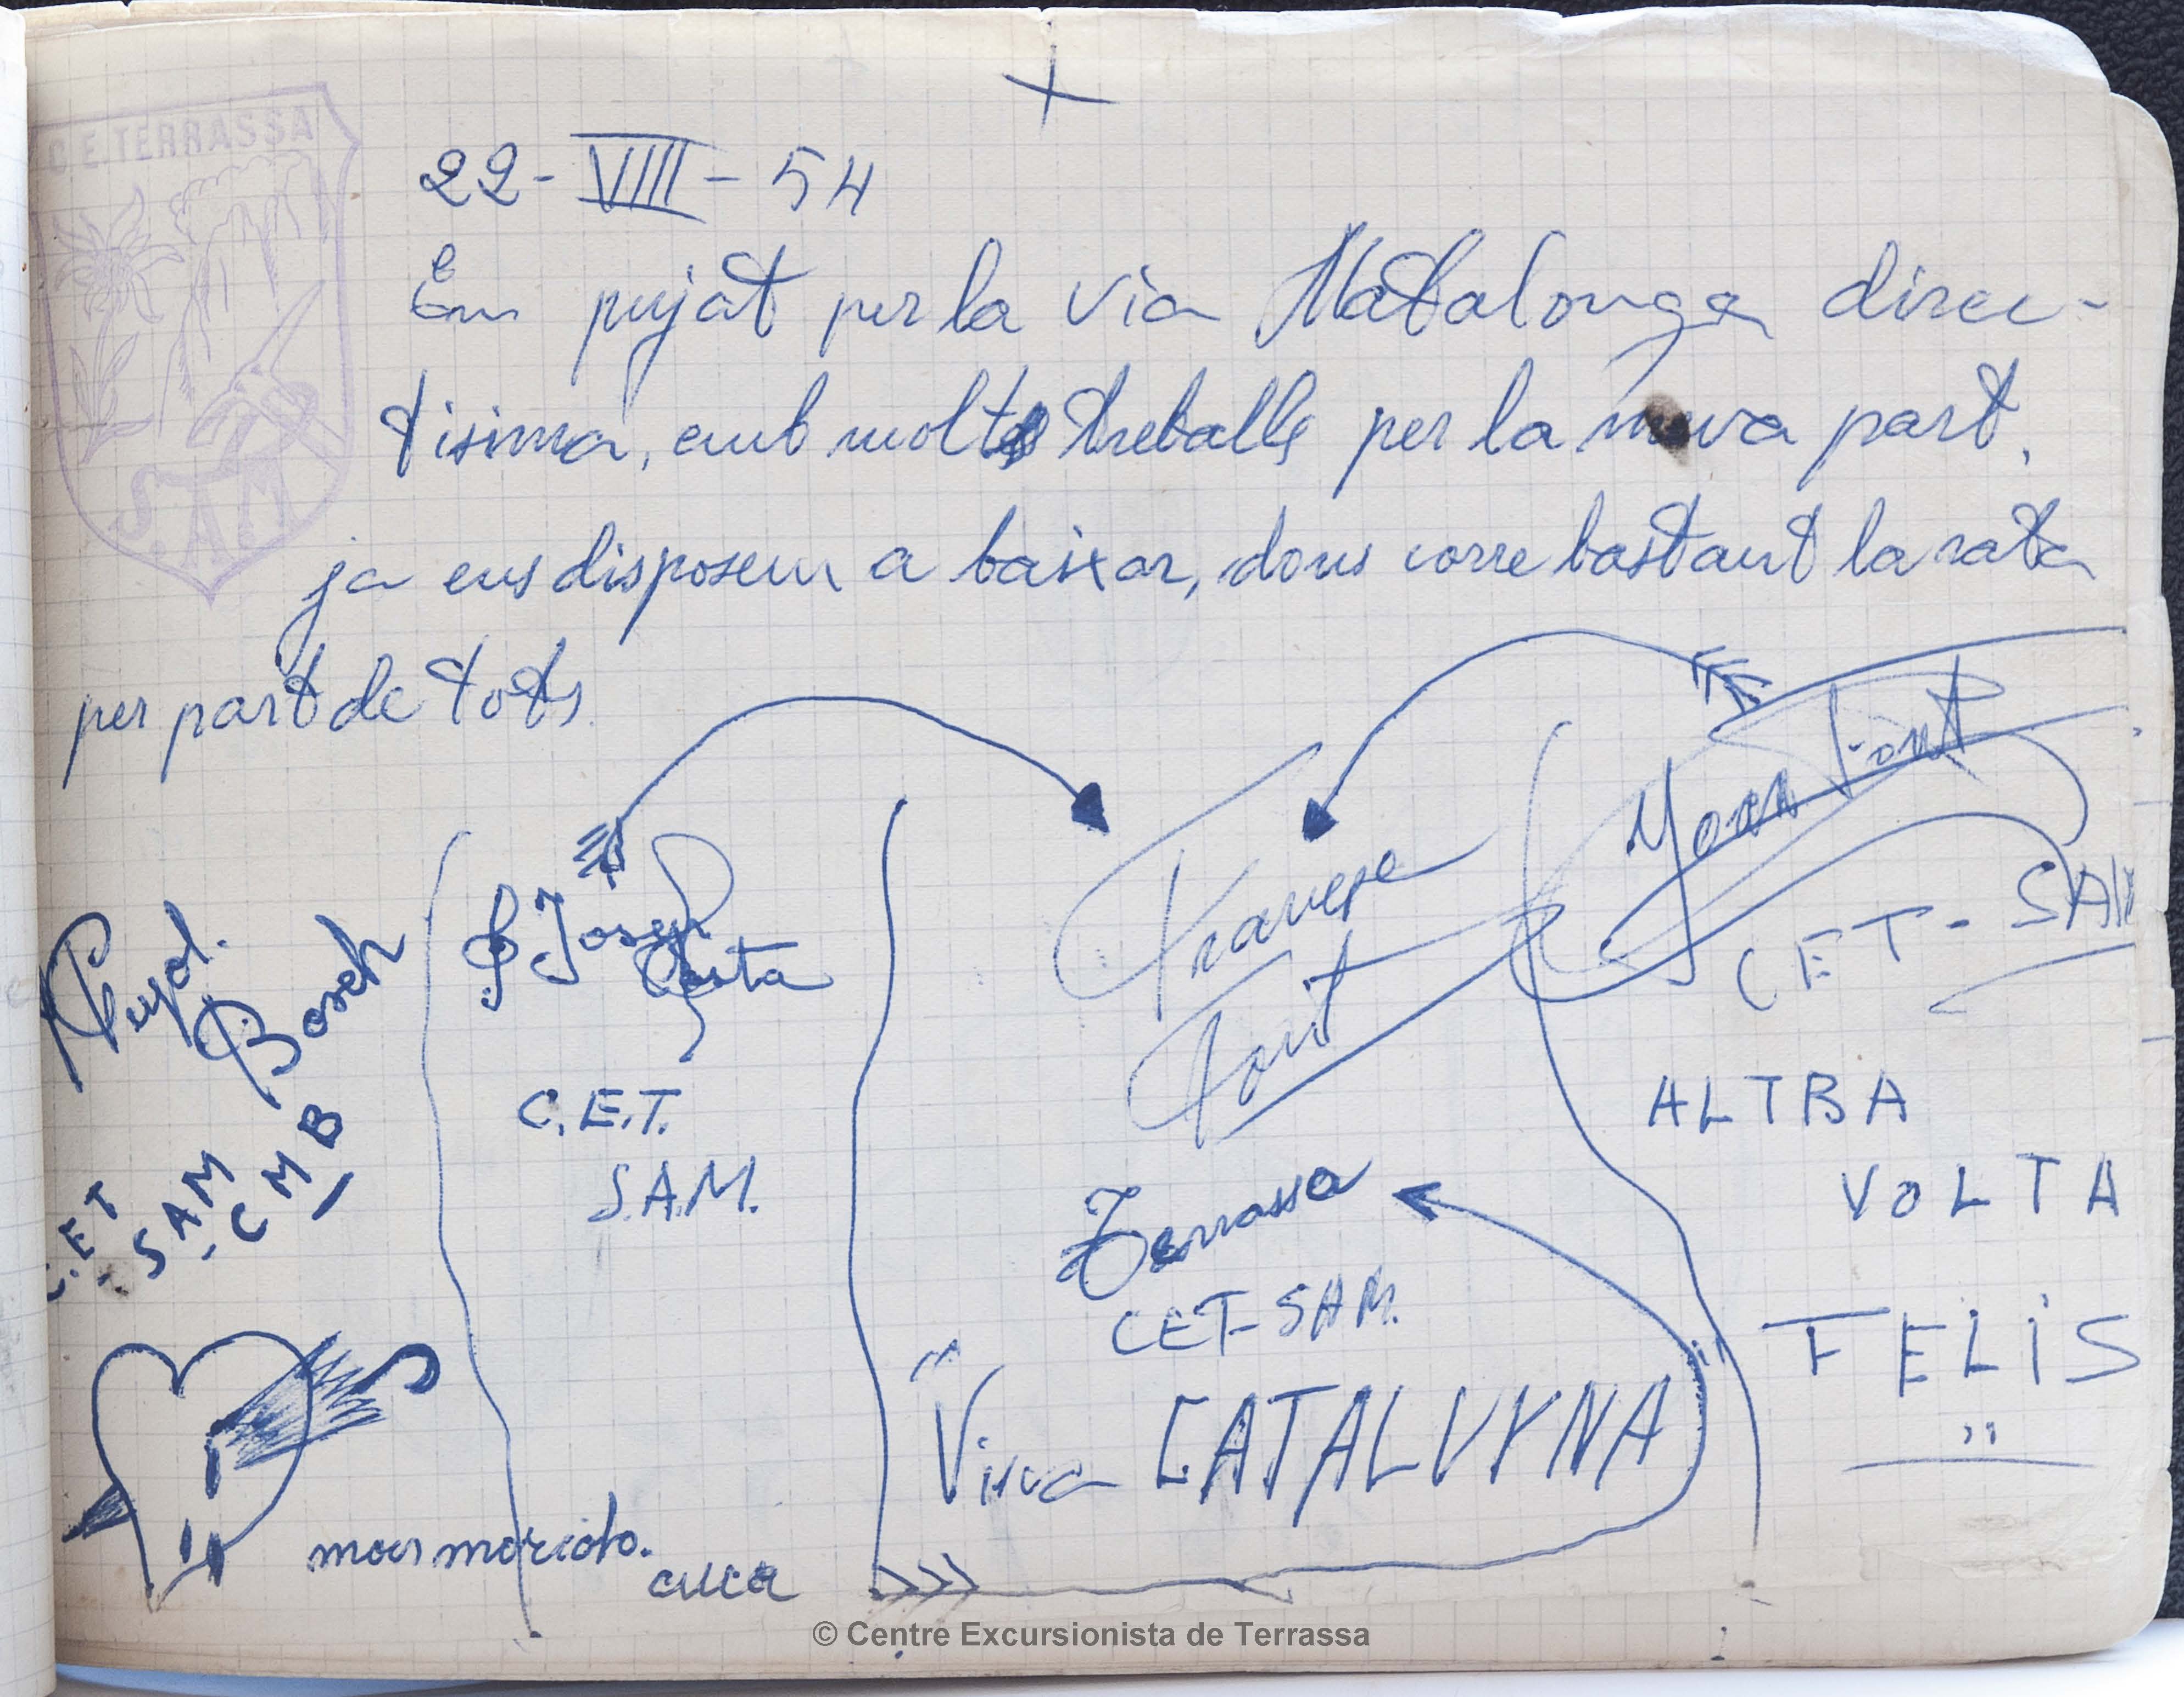 C.E.TERRASSA
S.A.M
22-VIII-54
Em pujat per la via Matalonga direc-
tisima, emb molts treballs per la meva part.
ja ens disposem a baixar, dons corre bastant la rata
per part de tots
Pujol.
Bosch
C.E.T
-SAM
-CMB
Josep
Costa
C.E.T.
S.A.M.
Font
Terrassa
CET-SAM.
Viva CATALVYNA
Font
CET-SAM
ALTRA
VOLTA
FELIS
cuca
© Centre Excursionista de Terrassa